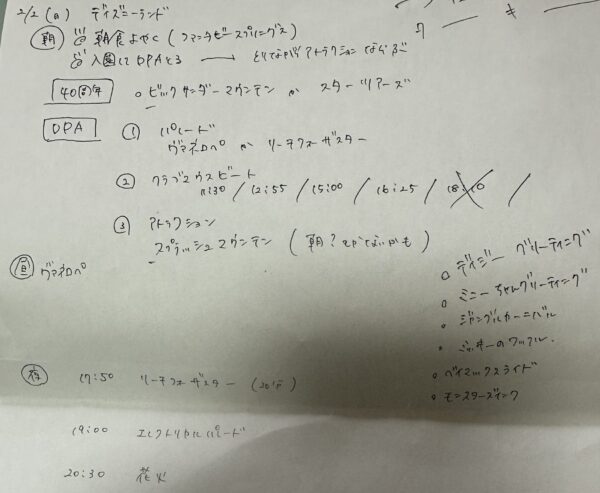 2/2 (月) ディズニーランド
朝 朝食よやく (ファンタビースプリングス)
入園してDPAとる → とれてなければアトラクションならぶ
40周年 ○ ビックサンダーマウンテン か スターツアーズ
DPA ① パレード
ヴァネロペ か リーチフォザスター
② クラブマウスビート
11:30 / 12:55 / 15:00 / 16:25 / 18:10 /
③ アトラクション
スプラッシュマウンテン (朝?
昼 ヴァネロペ
○ デイジー グリーティング
○ ミニーちゃんグリーティング
○ ジャングルカーニバル
○ ミッキーのワッフル.
○ ベイマックスライド
○ モンスターズインク
夜 17:50 リーチフォザスター (20分)
19:00 エレクトリカルパレード
20:30 花火